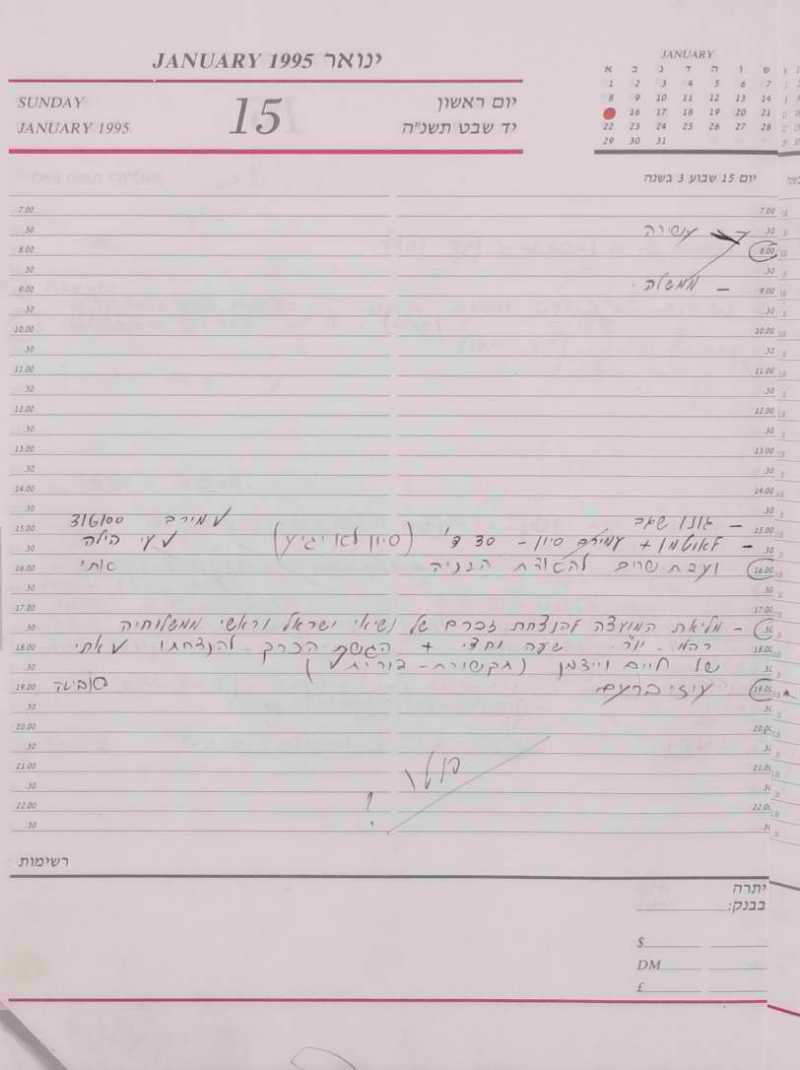 ינואר JANUARY 1995
SUNDAY
JANUARY 1995
15
יום ראשון
יד שבט תשנ"ה
JANUARY
א ב ג ד ה ו ש
1 2 3 4 5 6 7
8 9 10 11 12 13 14
16 17 18 19 20 21
22 23 24 25 26 27 28
29 30 31
יום 15 שבוע 3 בשנה
7.00
.30 עשירה
8.00
.30
9.00 - ממשלה
.30
10.00
.30
11.00
.30
12.00
.30
13.00
.30
14.00
.30
15.00 - שגב
.30 - + עמירם סיון - 30 ד' (סיון לא יגיע) הילה
16.00 ועדת שרים אתי
.30
17.00
.30 - מליאת המועצה להנצחת זכרם של נשיאי ישראל וראשי ממשלותיה
18.00 שעה וחצי + הכרך להנצחתו אתי
.30 של חיים וייצמן (תקשורת - דורית)
19.00 עוזי ברעם
.30
20.00
.30
21.00
.30 ?
22.00
.30
רשימות
יתרה
בבנק:
$
DM
£